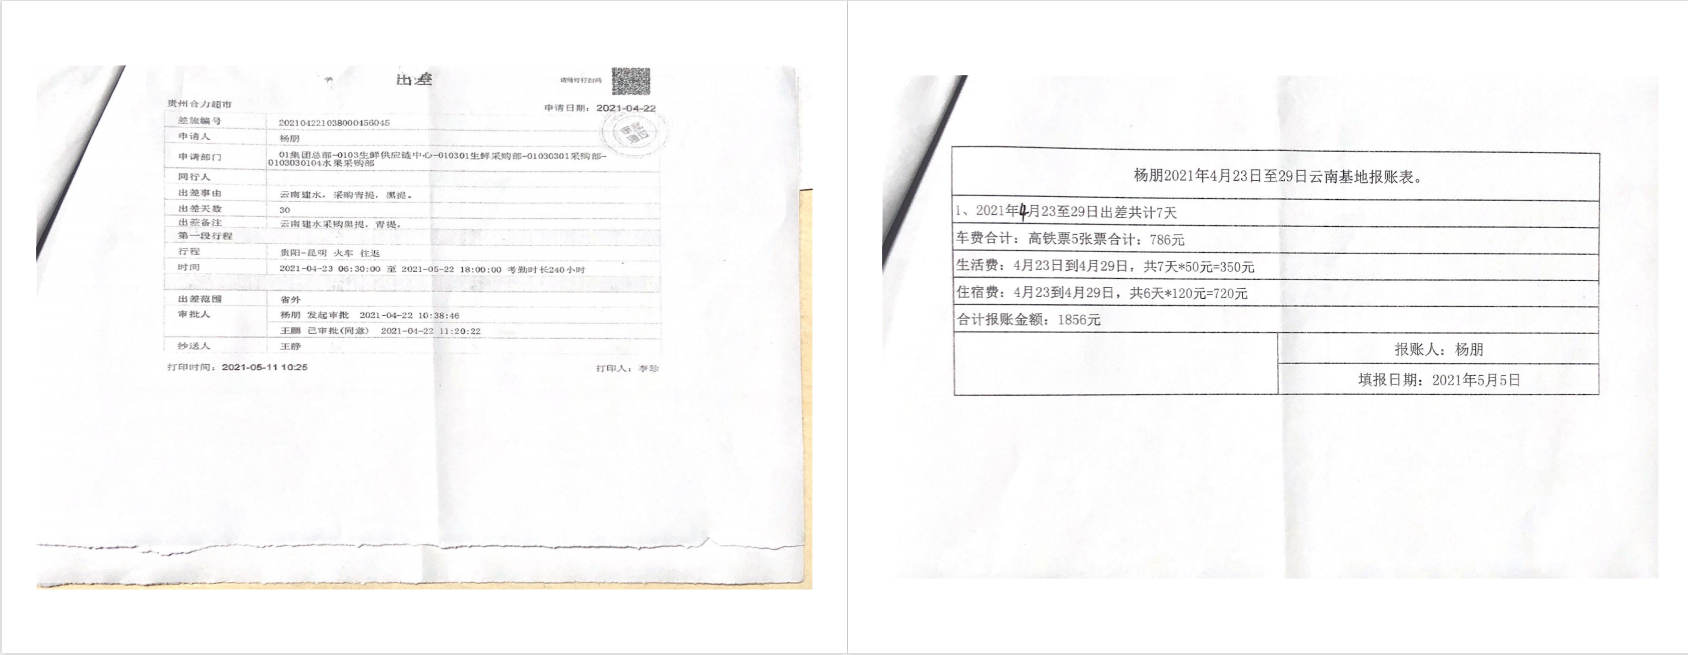 出差
请用钉钉扫码
贵州合力超市
申请日期：2021-04-22
差旅编号 202104221038000456045
申请人 杨朋
申请部门 01集团总部-0103生鲜供应链中心-010301生鲜采购部-01030301采购部-
0103030104水果采购部
同行人
出差事由 云南建水，采购青提，黑提。
出差天数 30
出差备注 云南建水采购黑提，青提。
第一段行程
行程 贵阳-昆明 火车 往返
时间 2021-04-23 06:30:00 至 2021-05-22 18:00:00 考勤时长240小时
出差范围 省外
审批人 杨朋 发起审批 2021-04-22 10:38:46
王鹏 已审批(同意) 2021-04-22 11:20:22
抄送人 王静
打印时间：2021-05-11 10:25
打印人：李珍
杨朋2021年4月23日至29日云南基地报账表。
1、2021年4月23至29日出差共计7天
车费合计：高铁票5张票合计：786元
生活费：4月23日到4月29日，共7天*50元=350元
住宿费：4月23到4月29日，共6天*120元=720元
合计报账金额：1856元
报账人：杨朋
填报日期：2021年5月5日